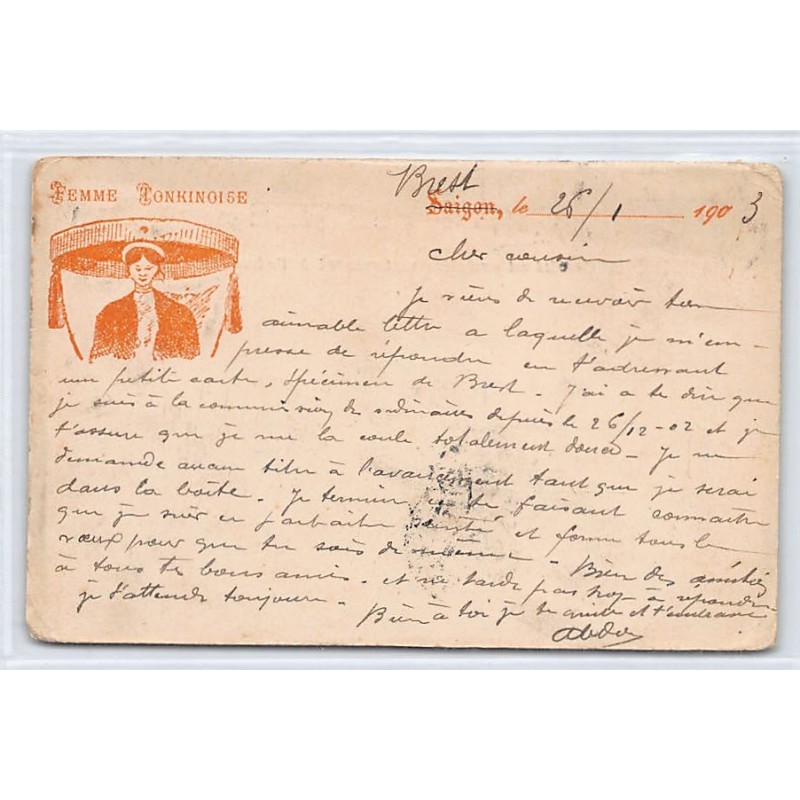 FEMME TONKINOISE
Brest
Saigon, le 26/1 1903
Cher cousin
Je viens de recevoir ton
aimable lettre a laquelle je m'em-
presse de répondre en t'adressant
une petite carte, spécimen de Brest. J'ai a te dire que
je suis à la commission des ordinaires depuis le 26/12-02 et je
t'assure que je me la coule totalement douce. Je ne
demande aucun titre à l'avancement tant que je serai
dans la boîte. Je termine en te faisant connaitre
que je suis en parfaite santé et forme tous les
vœux pour que tu sois de même. Bien des amitiés
à tous tes bons amis. et ne tarde pas trop à répondre
je t'attends toujours.
Bien à toi je te quitte et t'embrasse